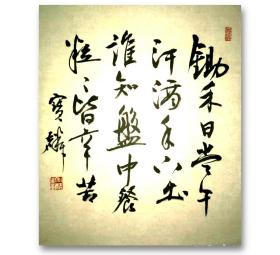 鋤禾日當午
汗滴禾下土
誰知盤中餐
粒々皆辛苦
寶麟